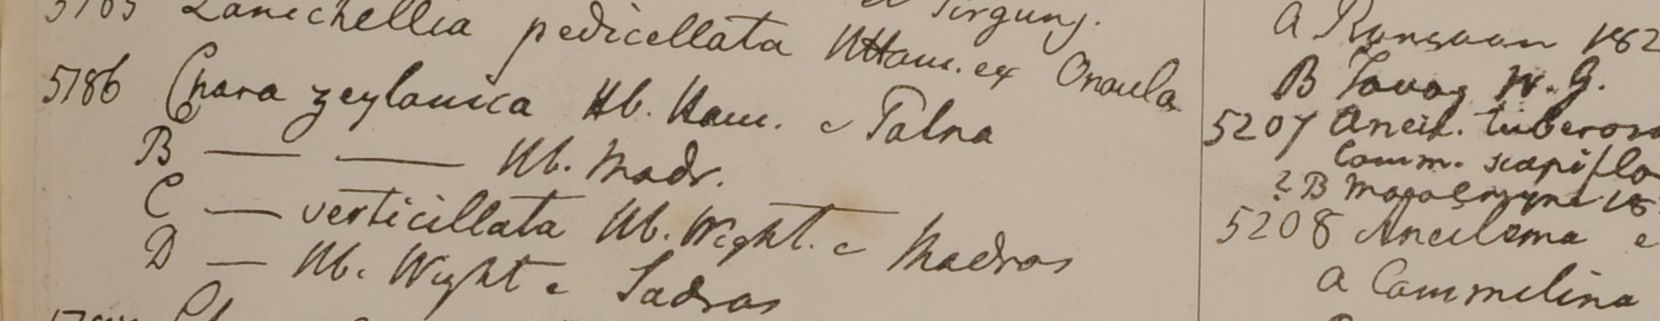 5185 Zanichellia pedicellata HHam. ex Onaula
5186 Chara zeylanica Hb. Ham. e Patna
B — — Hb. Madr.
C — verticillata Hb. Wight. e Madras
D — Hb. Wight e Sadras
B Tavoy W. G.
5207 Aneil. tuberosa
Comm. scapiflo
? B
5208 Aneilema e
a Commelina